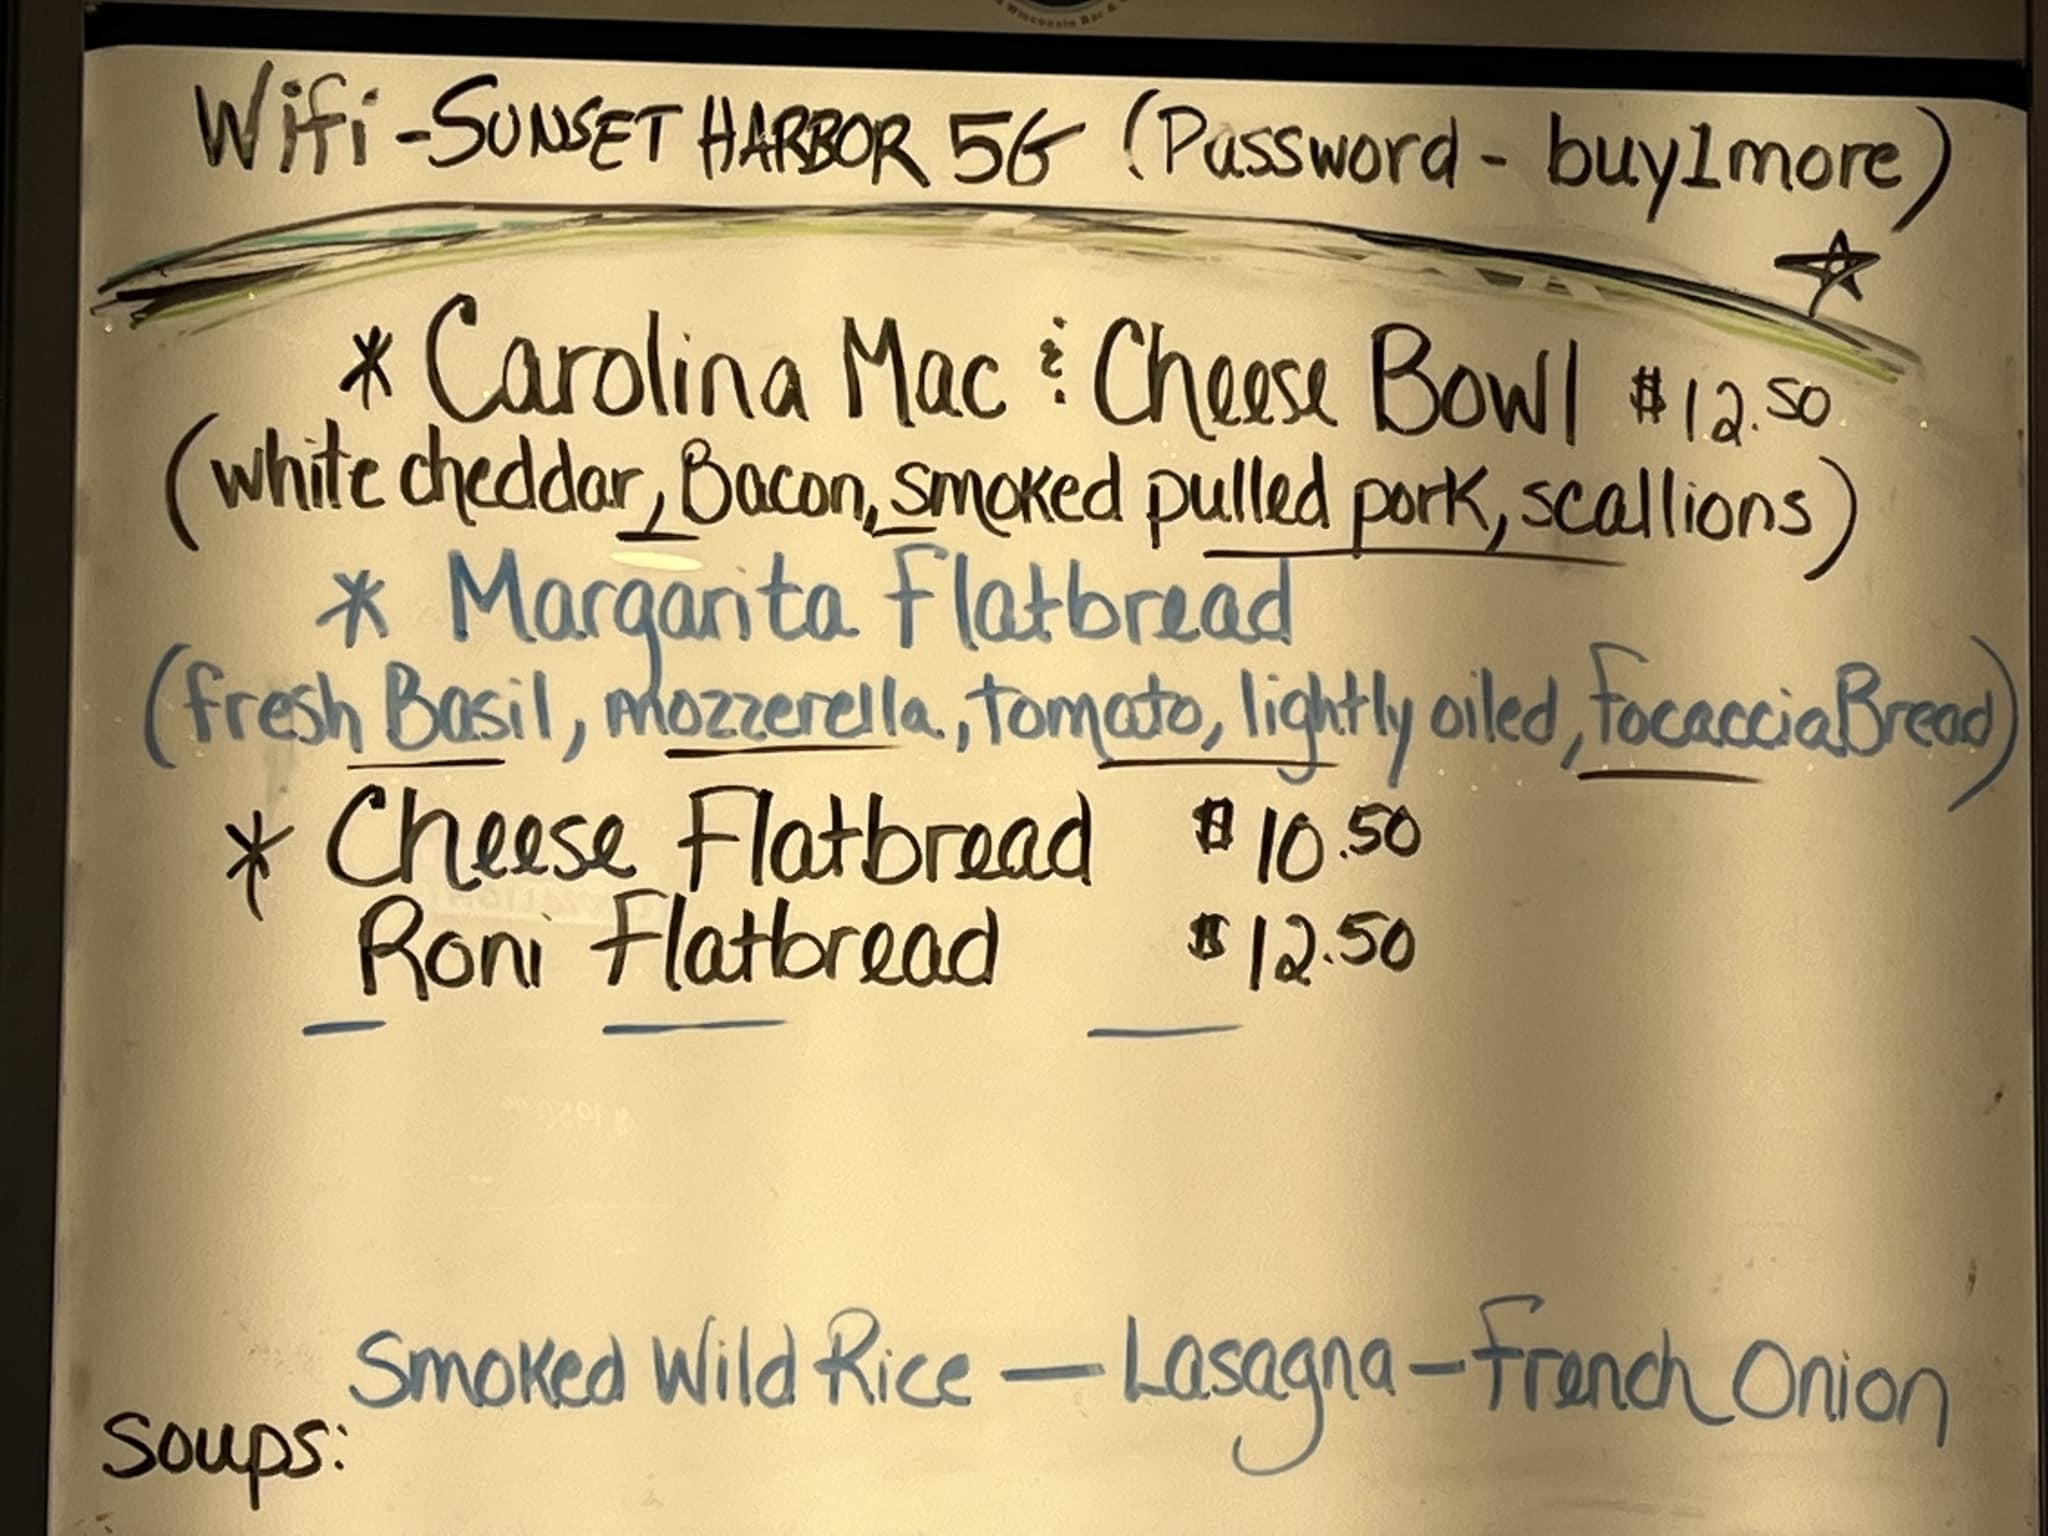 Wisconsin Bar &
Wifi - SUNSET HARBOR 5G (Password - buy1more)
* Carolina Mac & Cheese Bowl $12.50
(white cheddar, Bacon, smoked pulled pork, scallions)
* Margarita Flatbread
(fresh Basil, mozzerella, tomato, lightly oiled, Focaccia Bread)
* Cheese Flatbread $10.50
Roni Flatbread $12.50
Smoked Wild Rice — Lasagna - French Onion
Soups: